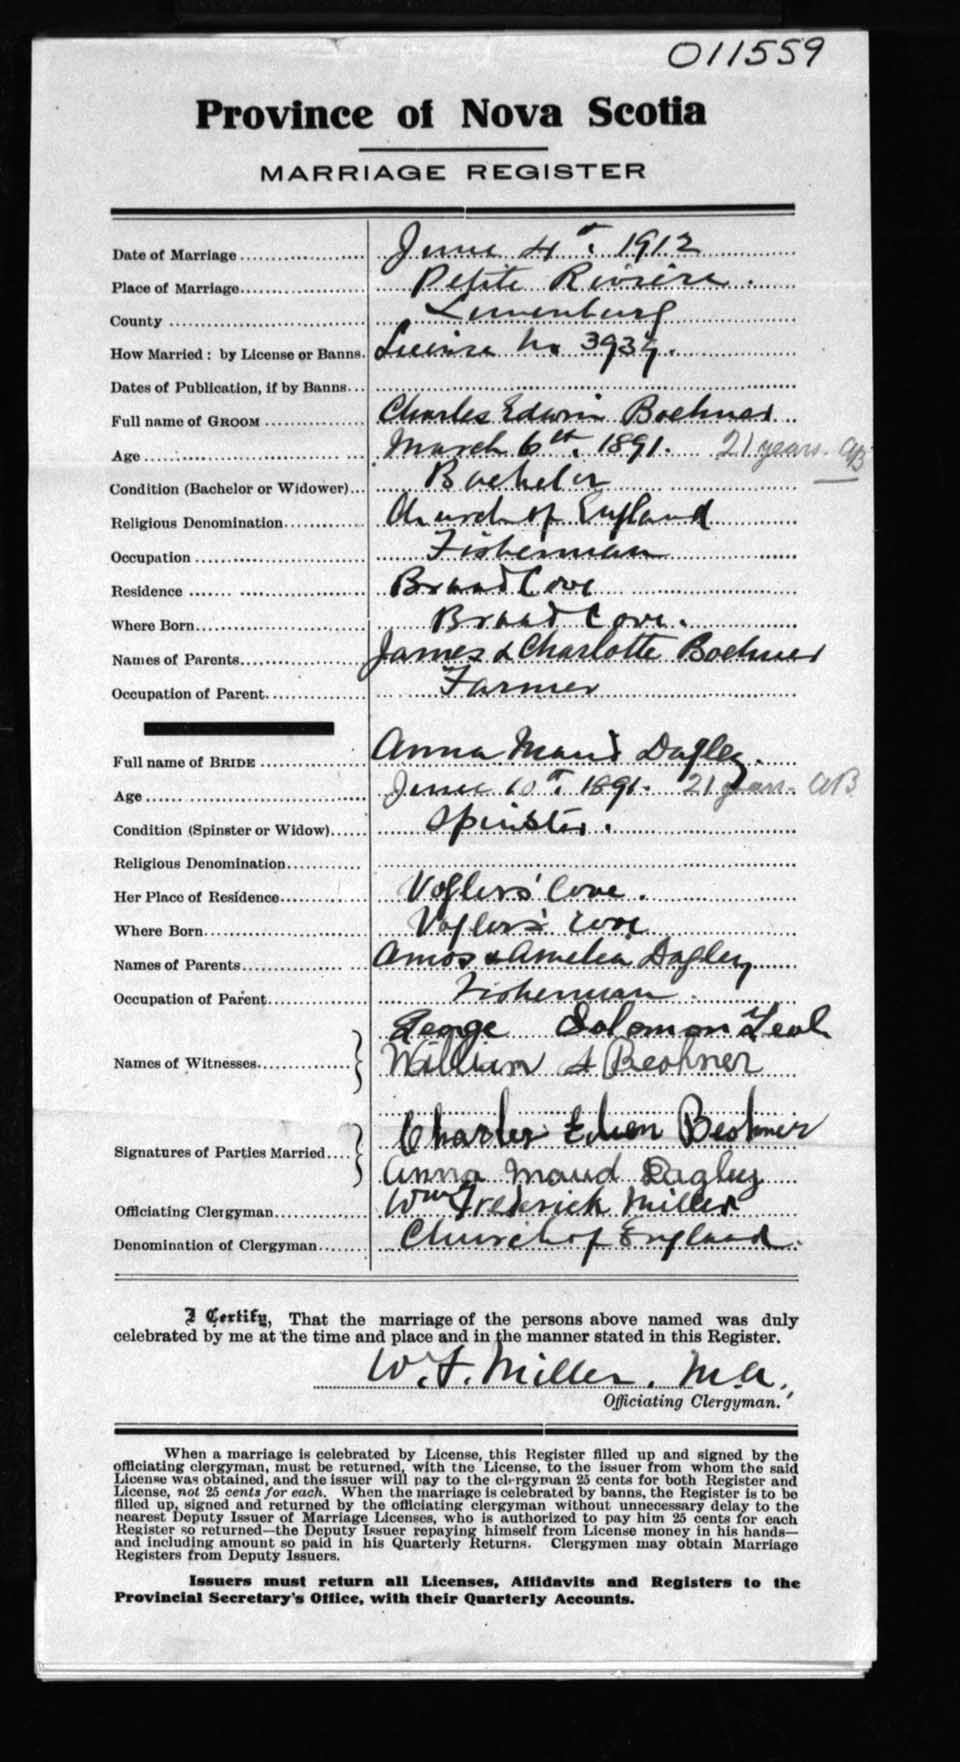 011559
Province of Nova Scotia
MARRIAGE REGISTER
Date of Marriage June 4th. 1912
Place of Marriage Petite Riviere.
County Lunenburg
How Married: by License or Banns. License No 3937.
Dates of Publication, if by Banns
Full name of GROOM Charles Edwin Boehner
Age March 6th. 1891. 21 years. AB
Condition (Bachelor or Widower) Bachelor
Religious Denomination Church of England
Occupation Fisherman
Residence Broad Cove
Where Born Broad Cove.
Names of Parents James & Charlotte Boehner
Occupation of Parent Farmer
Full name of BRIDE Anna Maud Dagley.
Age June 10th. 1891. 21 years. AB
Condition (Spinster or Widow) Spinster.
Religious Denomination
Her Place of Residence Voglers' Cove.
Where Born Voglers' Cove
Names of Parents Amos & Amelia Dagley
Occupation of Parent Fisherman.
Names of Witnesses George Solomon
William A Beohner
Signatures of Parties Married Charles Beohner
Anna Maud Dagley
Officiating Clergyman Wm Frederick Miller
Denomination of Clergyman Church of England.
I Certify, That the marriage of the persons above named was duly
celebrated by me at the time and place and in the manner stated in this Register.
W. F. Miller. M.A.,
Officiating Clergyman.
When a marriage is celebrated by License, this Register filled up and signed by the
officiating clergyman, must be returned, with the License, to the issuer from whom the said
License was obtained, and the issuer will pay to the clergyman 25 cents for both Register and
License, not 25 cents for each. When the marriage is celebrated by banns, the Register is to be
filled up, signed and returned by the officiating clergyman without unnecessary delay to the
nearest Deputy Issuer of Marriage Licenses, who is authorized to pay him 25 cents for each
Register so returned—the Deputy Issuer repaying himself from License money in his hands—
and including amount so paid in his Quarterly Returns. Clergymen may obtain Marriage
Registers from Deputy Issuers.
Issuers must return all Licenses, Affidavits and Registers to the
Provincial Secretary's Office, with their Quarterly Accounts.